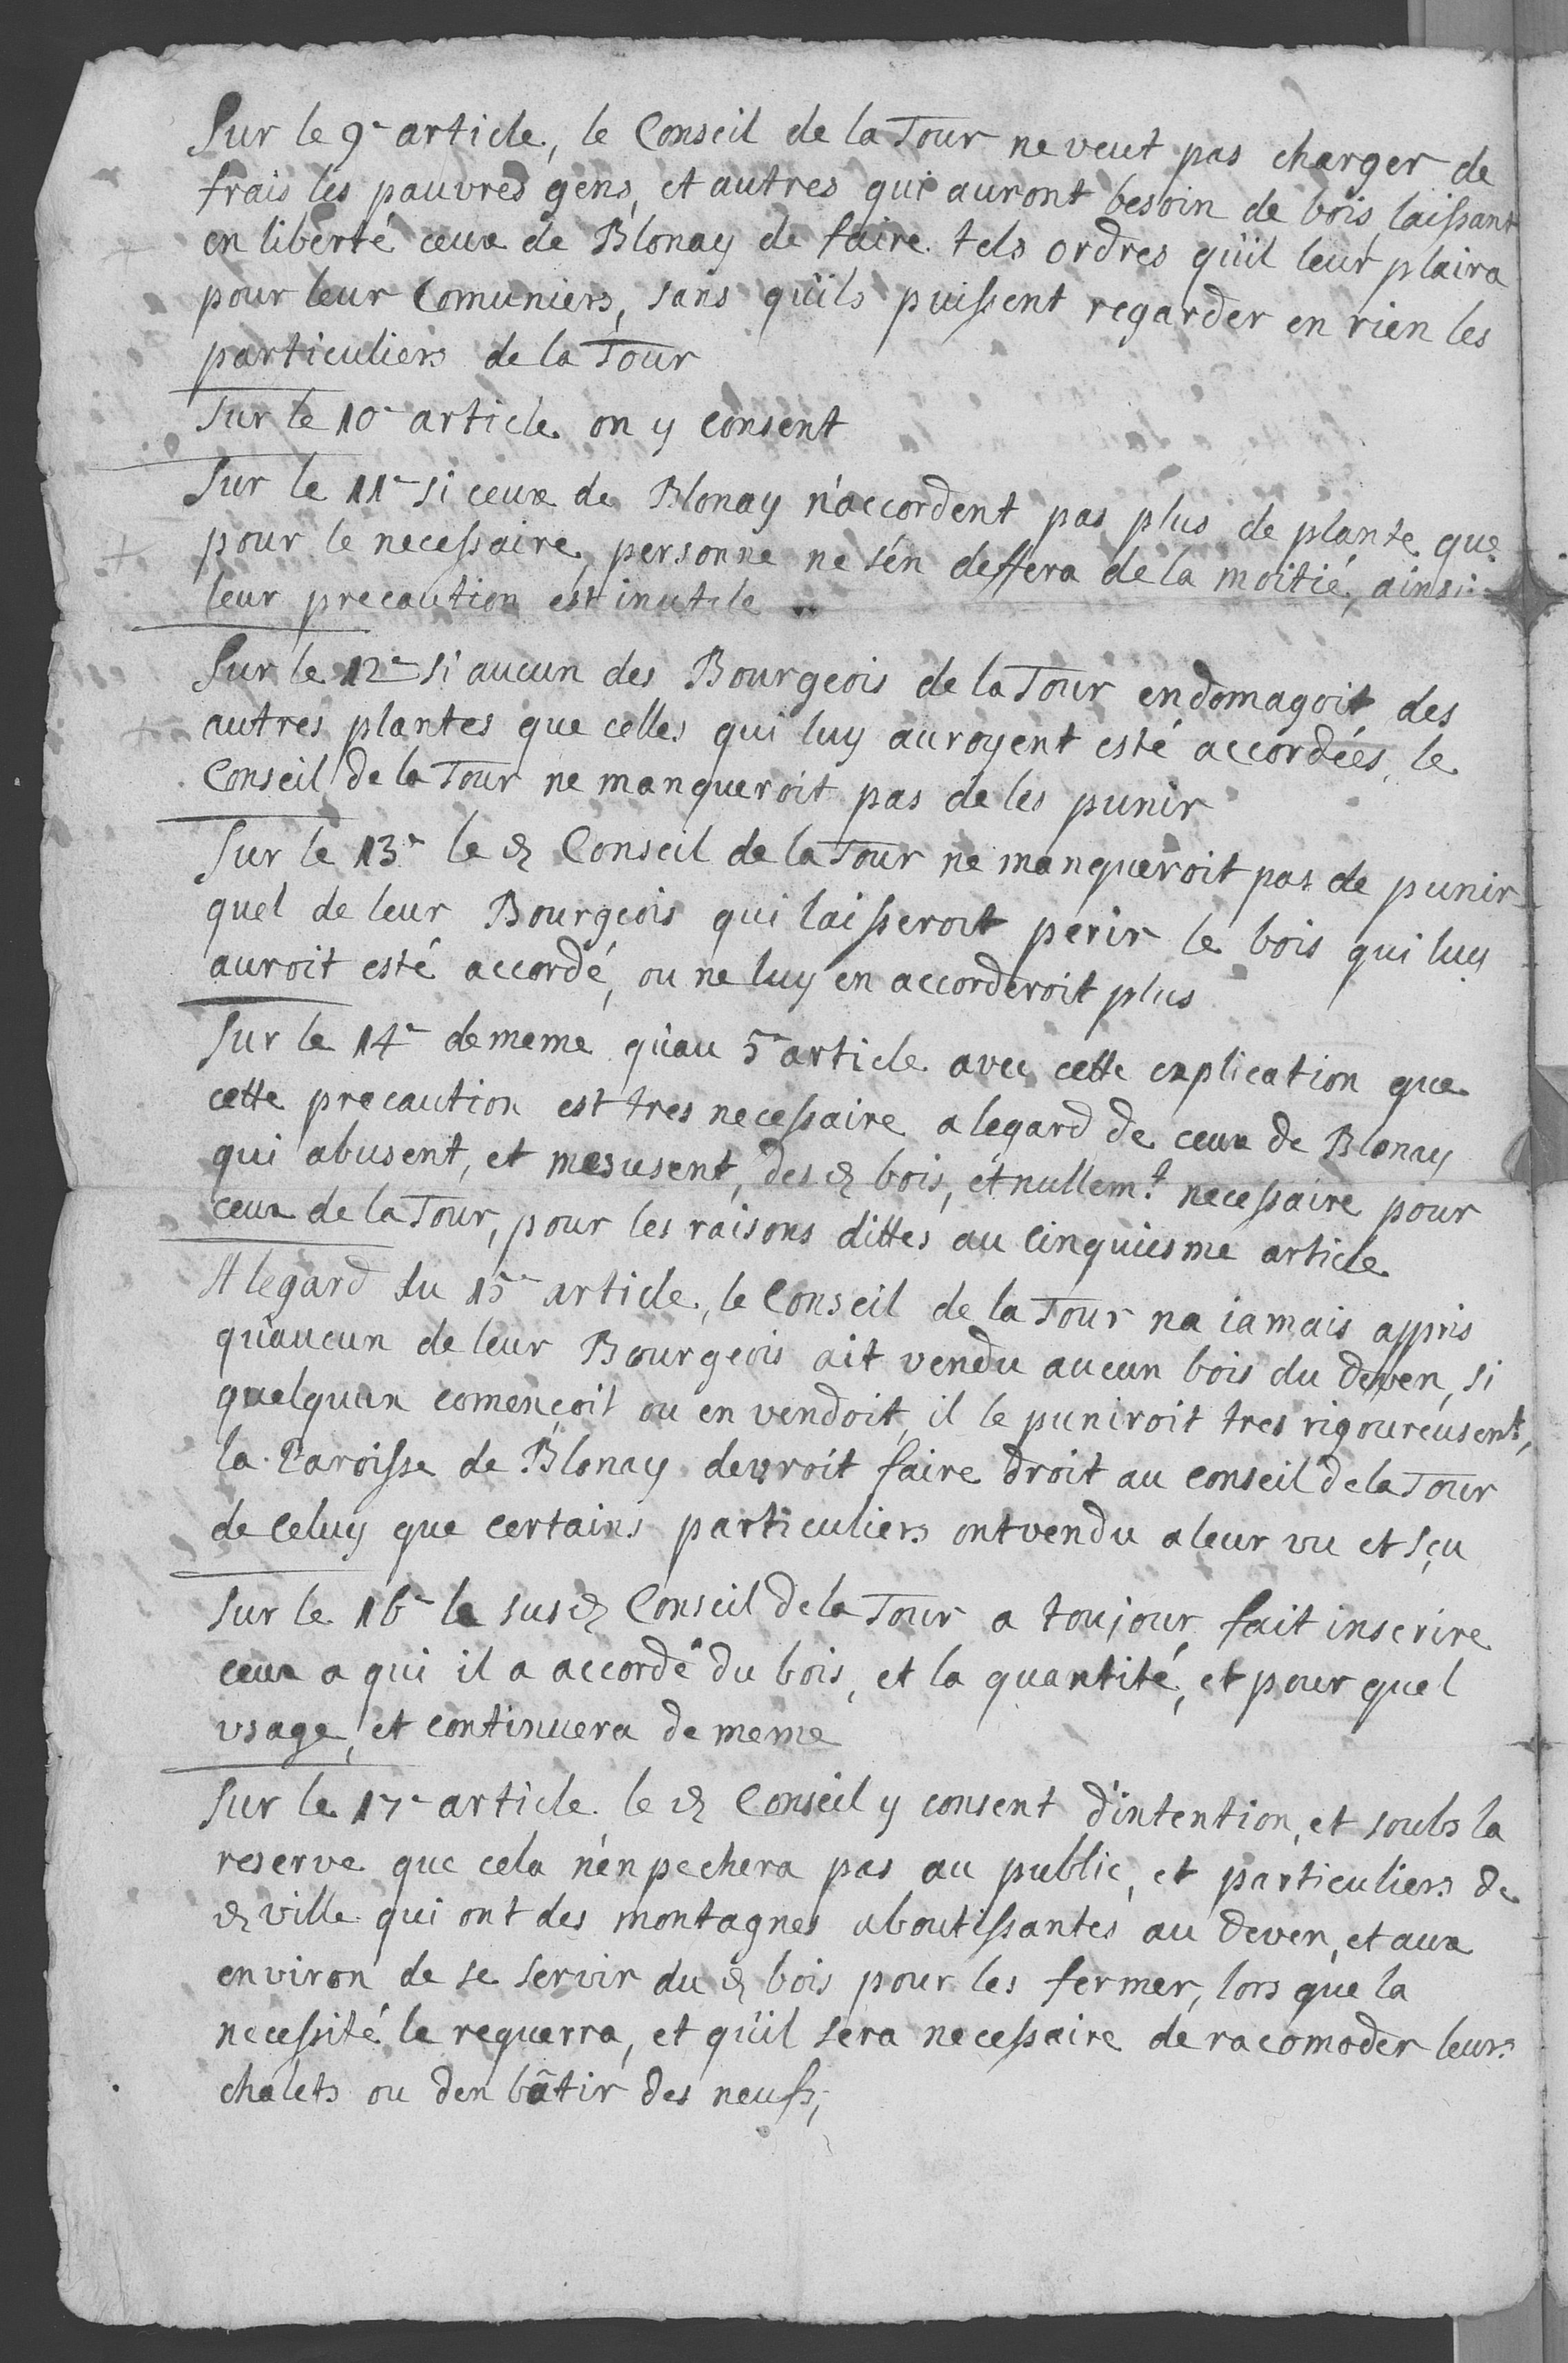 Sur le 9e article, le Conseil de la Tour ne veut pas charger de
frais les pauvres gens, et autres qui auront besoin de bois, laissant
en liberté ceux de Blonay de faire tels ordres qu'il leur plaira
pour leur Comuniers, sans qu'ils puissent regarder en rien les
particuliers de la Tour
Sur le 10e article on y consent
Sur le 11e si ceux de Blonay n'accordent pas plus de plante que
pour le necessaire, personne ne s'en deffera de la moitié, ainsi
leur precaution est inutile
Sur le 12e si aucun des Bourgeois de la Tour endomagoit des
autres plantes que celles qui luy auroyent esté accordées, le
Conseil de la Tour ne manqueroit pas de les punir
Sur le 13e le d Conseil de la Tour ne manqueroit pas de punir
quel de leur Bourgeois qui laisseroit perir le bois qui luy
auroit esté accordé, ou ne luy en accorderoit plus
Sur le 14e de meme qu'au 5e article avec cette explication que
cette precaution est tres necessaire a legard de ceux de Blonay
qui abusent, et mesusent, des d bois, et nullemt necessaire pour
ceux de la Tour, pour les raisons dittes au Cinquiesme article
A legard du 15e article, le Conseil de la Tour na iamais appris
qu'aucun de leur Bourgeois ait vendu aucun bois du deven, si
quelquun començoit ou en vendoit, il le puniroit tres rigoureusent,
la Paroisse de Blonay devroit faire droit au Conseil de la Tour
de Celuy que certains particuliers ont vendu a leur vu et sçu
Sur le 16e le susd Conseil de la Tour a toujour fait inscrire
ceux a qui il a accordé du bois, et la quantité, et pour quel
usage, et continuera de meme
Sur le 17e article le d Conseil y consent d'intention, et soubs la
reserve que cela n'enpechera pas au public, et particuliers de
d ville qui ont des montagnes aboutissantes au deven, et aux
environ de se servir du d bois pour les fermer, lors que la
necessité le requerra, et qu'il sera necessaire de racomoder leurs
chalets ou den bâtir des neufs,